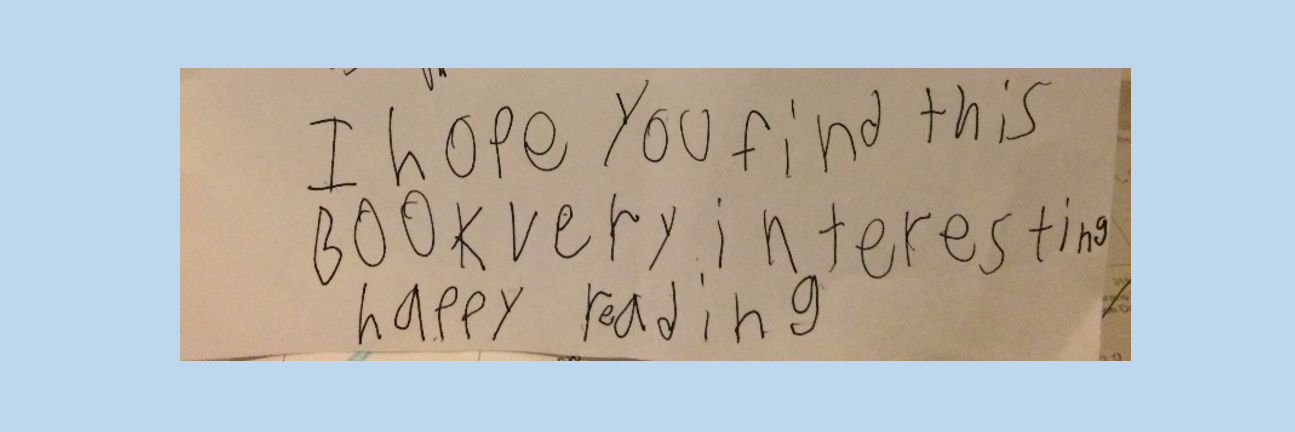 I hope You find this
BOOK very interesting
happy reading